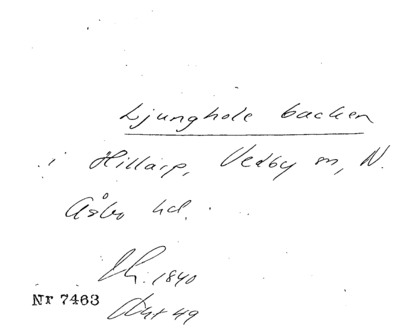 Ljunghole backen
i Hillarp, Vedby sn, N.
Åsbo hd.
1840
Nr 7463
Akt 49